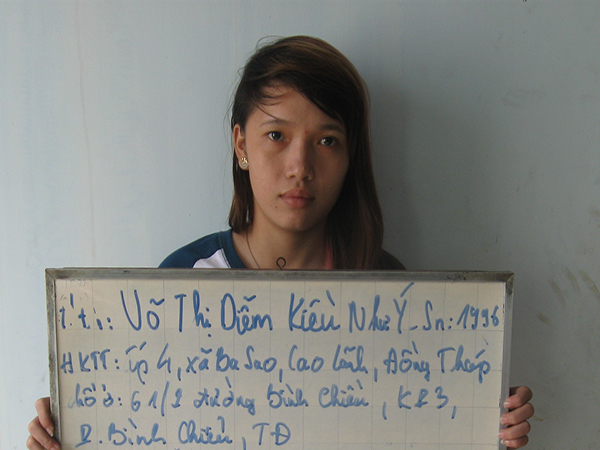 Võ Thị Diễm Kiều Như Ý - Sn: 1996
HKTT: ấp 4, xã Ba Sao, Cao Lãnh, Đồng Tháp
Chỗ ở: 61/2 đường Bình Chiểu, KP3,
P. Bình Chiểu, TĐ